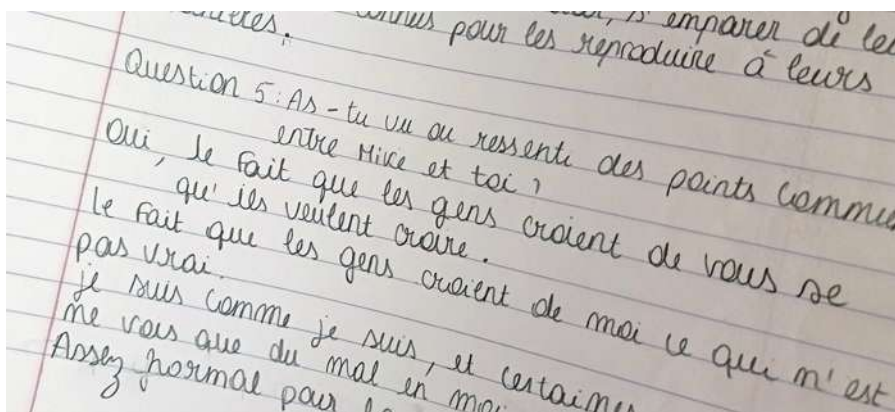 , s'emparer de le
pour les reproduire à leurs
Question 5: As-tu vu ou ressenti des points commu
entre Mike et toi ?
Oui, le fait que les gens croient de vous se
qu'ils veulent croire.
le fait que les gens croient de moi ce qui n'est
pas vrai.
je suis comme je suis, et certaines
ne vois que du mal en moi
Assez normal pour